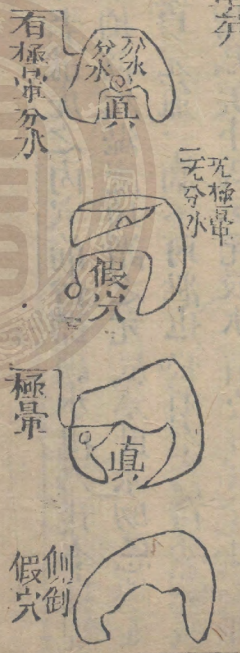 有極暈分水
分水
分水
真
旡極暈
一旡分水
假穴
極暈
真
側倒
假穴